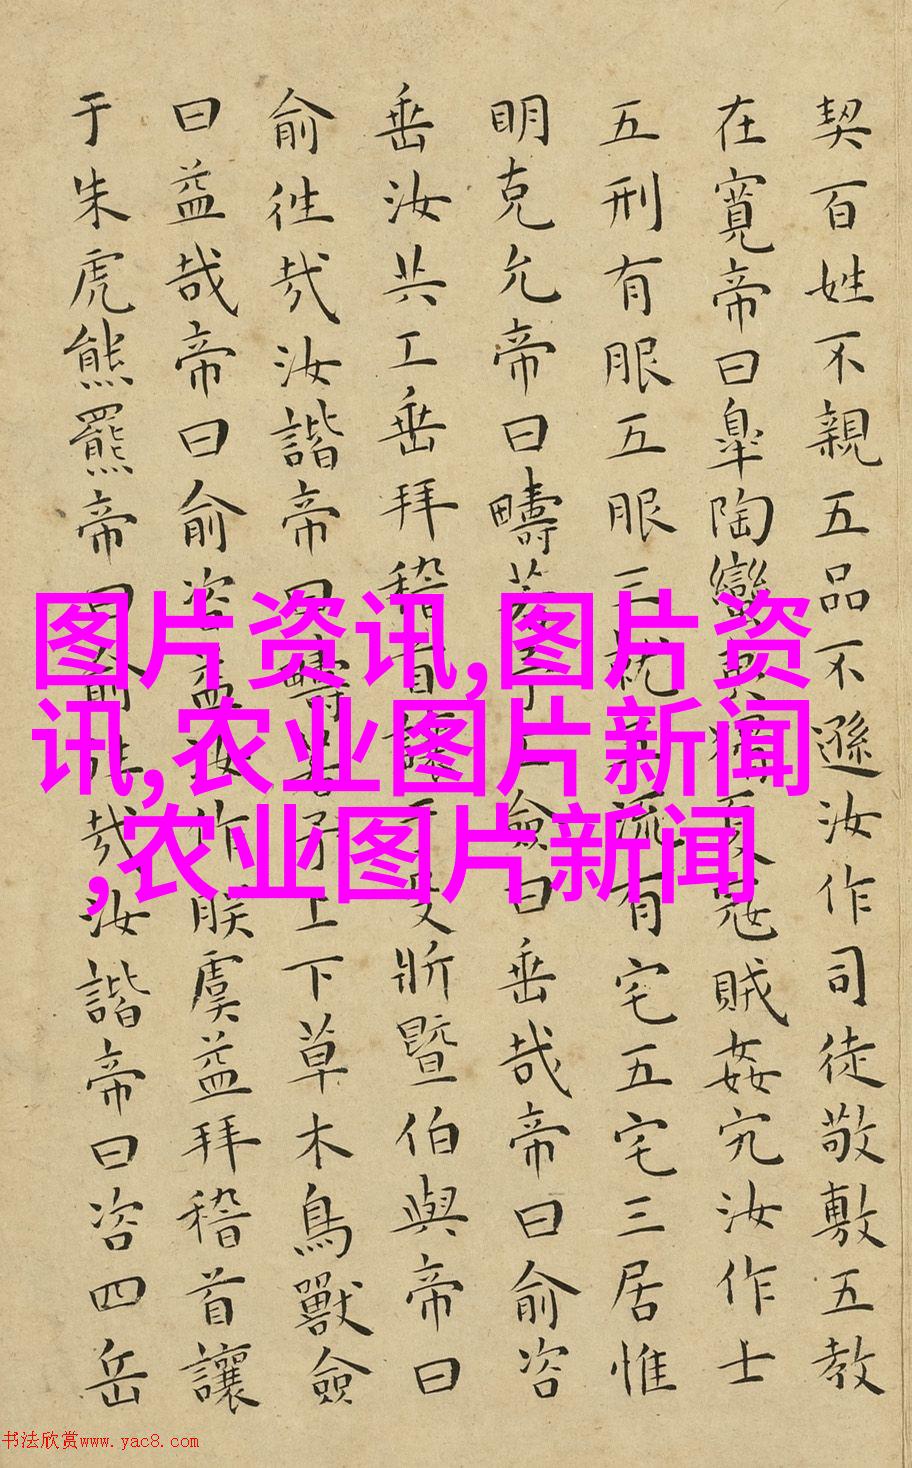 契百姓不親五品不遜汝作司徒敬敷五教
在寬帝曰皐陶蠻夷猾夏寇賊姦宄汝作士
五刑有服五服三就五流有宅五宅三居惟
明克允帝曰疇若予工僉曰垂哉帝曰俞咨
垂汝共工垂拜稽首讓于殳斨暨伯與帝曰
俞往哉汝諧帝曰疇若予上下草木鳥獸僉
曰益哉帝曰俞咨益汝作朕虞益拜稽首讓
于朱虎熊羆帝曰俞往哉汝諧帝曰咨四岳
图片资讯,图片资
讯,农业图片新闻
,农业图片新闻
书法欣赏www.yac8.com